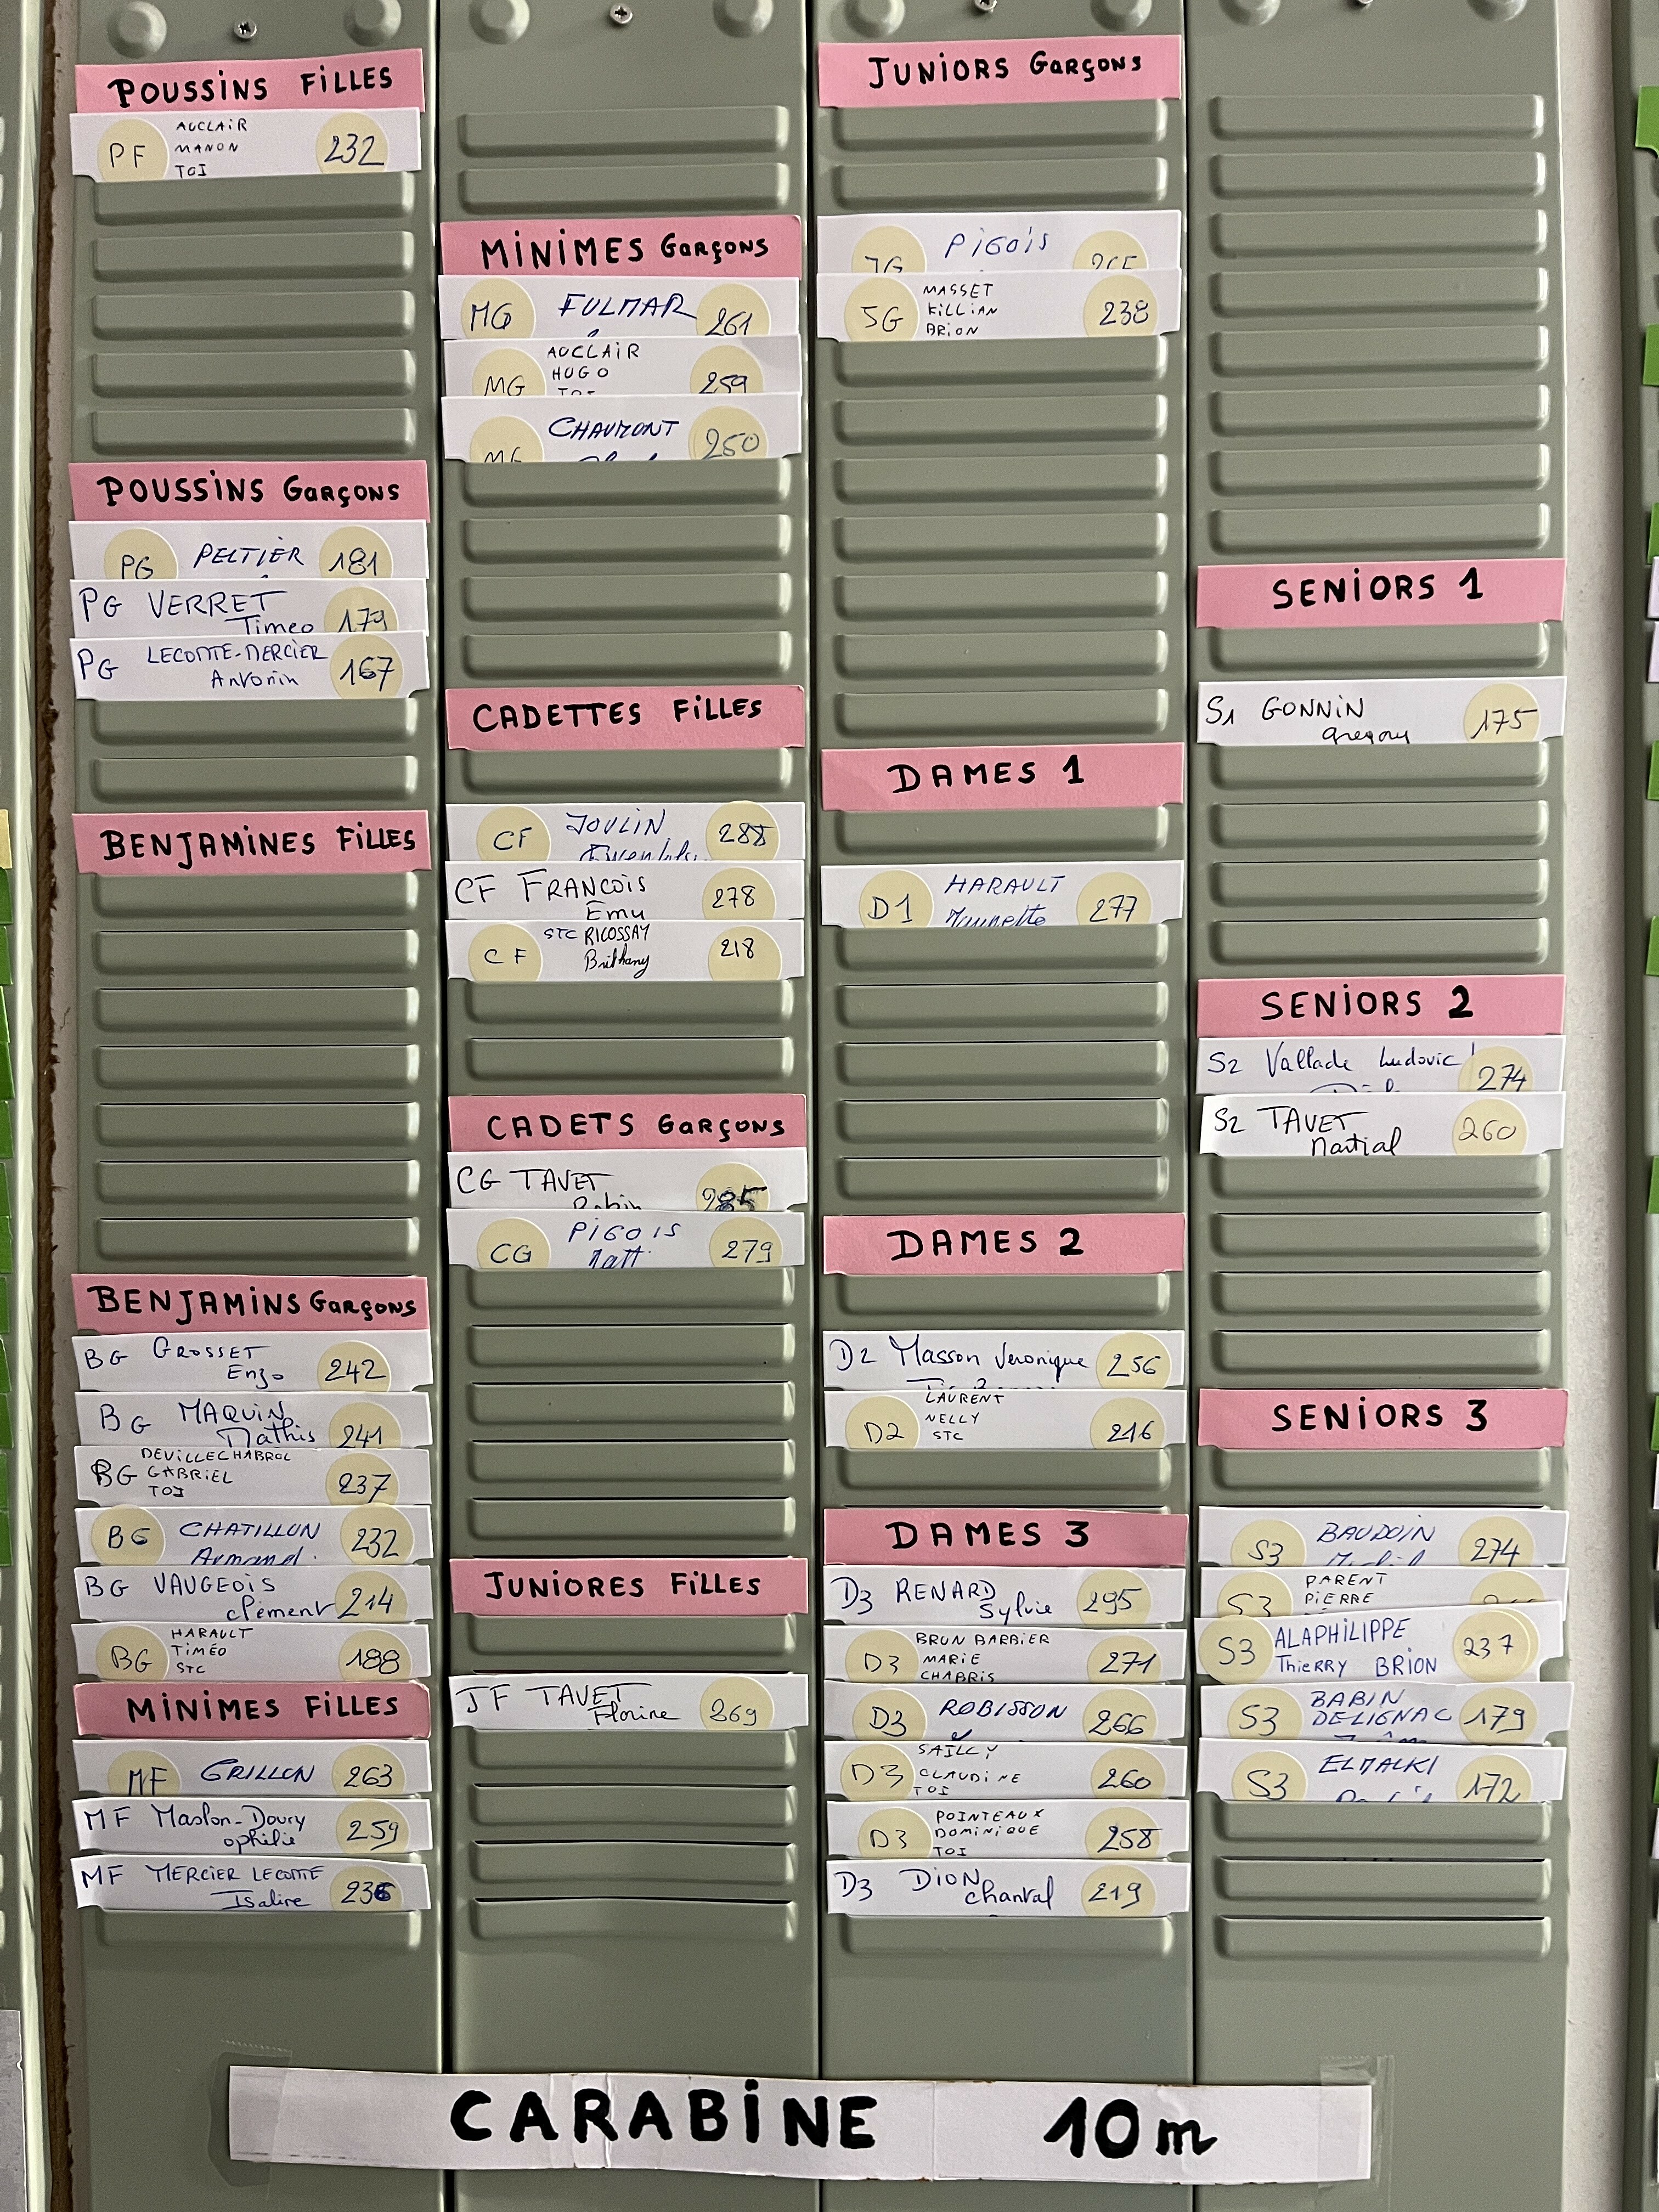 POUSSINS FILLES
PF AUCLAIR 232
MANON
TOI
POUSSINS GARÇONS
PG PELTIER 181
PG VERRET 179
Timeo
PG LECOMTE-MERCIER 167
Antonin
BENJAMINES FILLES
BENJAMINS GARÇONS
BG GROSSET 242
Enzo
BG MAQUIN 241
Mathis
DEVILLECHABROL
BG GABRIEL 237
TOI
BG CHATILLON 232
Armand
BG VAUGEOIS
clément 214
HARAULT
BG TIMÉO 188
STC
MINIMES FILLES
MF GRILLON 263
MF Maslon-Doury 259
ophélie
MF MERCIER LECOMTE 236
Isaline
MINIMES GARÇONS
MG FULMAR 261
AUCLAIR
MG HUGO 259
TOI
MG CHAUMONT 250
CADETTES FILLES
CF JOULIN 288
CF FRANCOIS 278
Emy
STC RICOSSAY
CF Brithany 218
CADETS GARÇONS
CG TAVET 285
Robin
CG PIGOIS 279
Matt
JUNIORES FILLES
JF TAVET 269
Florine
JUNIORS GARÇONS
JG PIGOIS 265
MASSET
JG KILLIAN 238
BRION
DAMES 1
D1 HARAULT 277
DAMES 2
D2 Masson Veronique 256
LAURENT
D2 NELLY 216
STC
DAMES 3
D3 RENARD 295
Sylvie
BRUN BARBIER
D3 MARIE 271
CHABRIS
D3 ROBISSON 266
SAILLY
D3 CLAUDINE 260
TOI
POINTEAUX
D3 DOMINIQUE 258
TOI
D3 DION 219
chantal
SENIORS 1
S1 GONNIN 175
gregory
SENIORS 2
S2 Vallade Ludovic 274
S2 TAVET 260
Martial
SENIORS 3
S3 BAUDOIN 274
PARENT
S3 PIERRE
S3 ALAPHILIPPE 237
Thierry BRION
BABIN
S3 DELIGNAC 179
S3 ELMALKI 172
CARABINE 10m